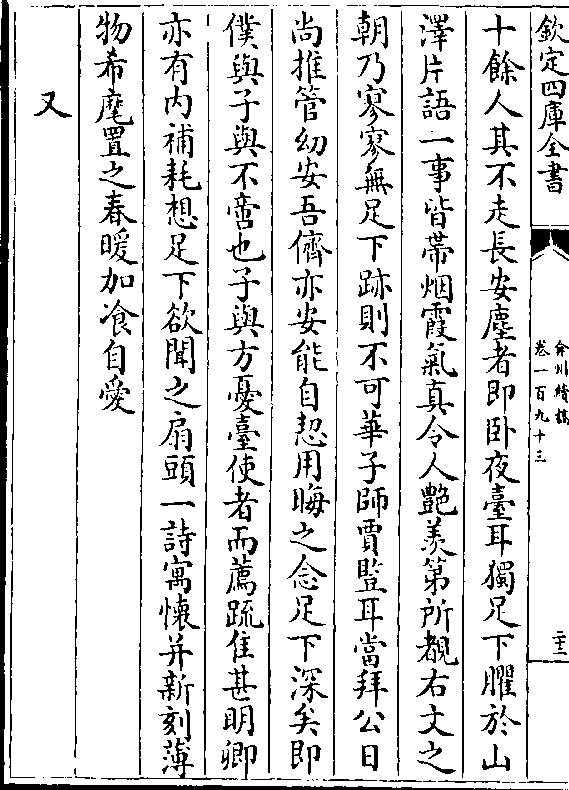 欽定四庫全書
弇州續稿
卷一百九十三
二十二
十餘人其不走長安塵者即卧夜臺耳獨足下臞於山
澤片語一事皆帶烟霞氣真令人艷羨第所覩右文之
朝乃寥寥無足下跡則不可華子師賈豎耳當拜公日
尚推管幼安吾儕亦安能自恝用晦之念足下深矣即
僕與子與不啻也子與方憂臺使者而薦疏隹甚明卿
亦有内補耗想足下欲聞之扇頭一詩寓懷并新刻薄
物希麾置之春暖加飡自愛
又